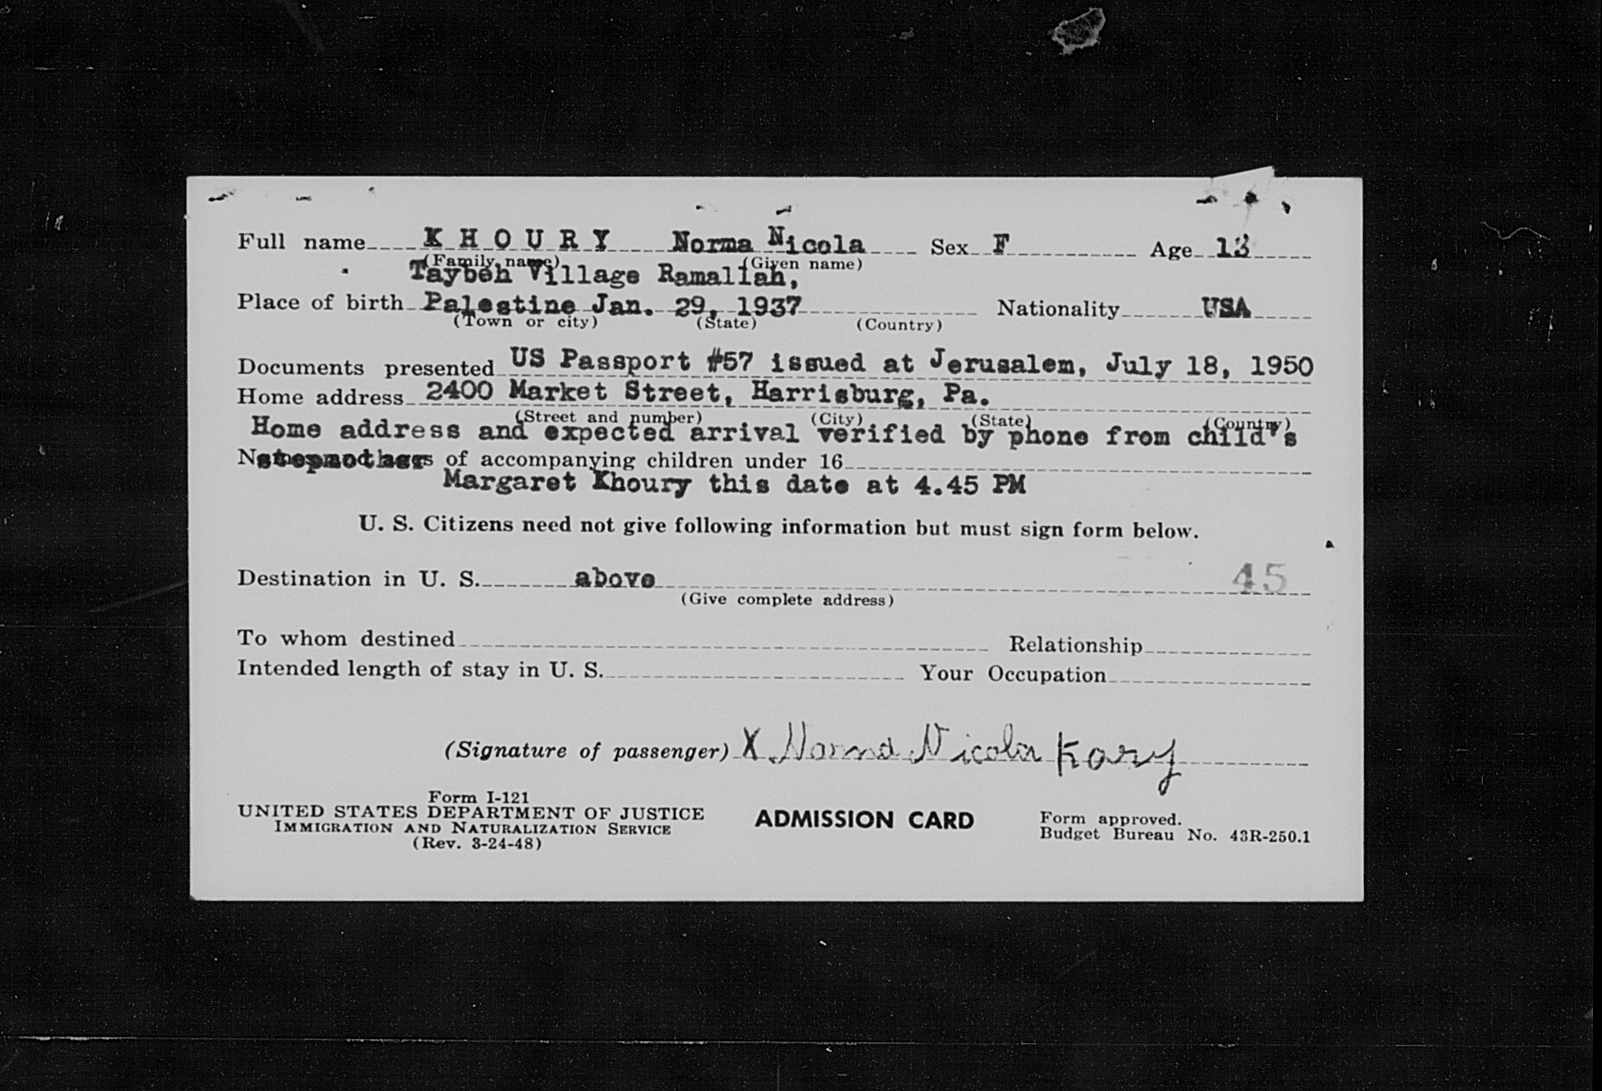 Full name K H O U R Y Norma Nicola Sex F Age 13
(Family name) (Given name)
Taybeh Village Ramallah,
Place of birth Palestine Jan. 29, 1937 Nationality USA
(Town or city) (State) (Country)
Documents presented US Passport #57 issued at Jerusalem, July 18, 1950
Home address 2400 Market Street, Harrisburg, Pa.
(Street and number) (City) (State) (Country)
Home address and expected arrival verified by phone from child's
stepmother
Names and ages of accompanying children under 16
Margaret Khoury this date at 4.45 PM
U. S. Citizens need not give following information but must sign form below.
Destination in U. S. above 45
(Give complete address)
To whom destined Relationship
Intended length of stay in U. S. Your Occupation
(Signature of passenger) X Norma Nicola Kory
Form I-121
UNITED STATES DEPARTMENT OF JUSTICE ADMISSION CARD Form approved.
IMMIGRATION AND NATURALIZATION SERVICE Budget Bureau No. 43R-250.1
(Rev. 3-24-48)